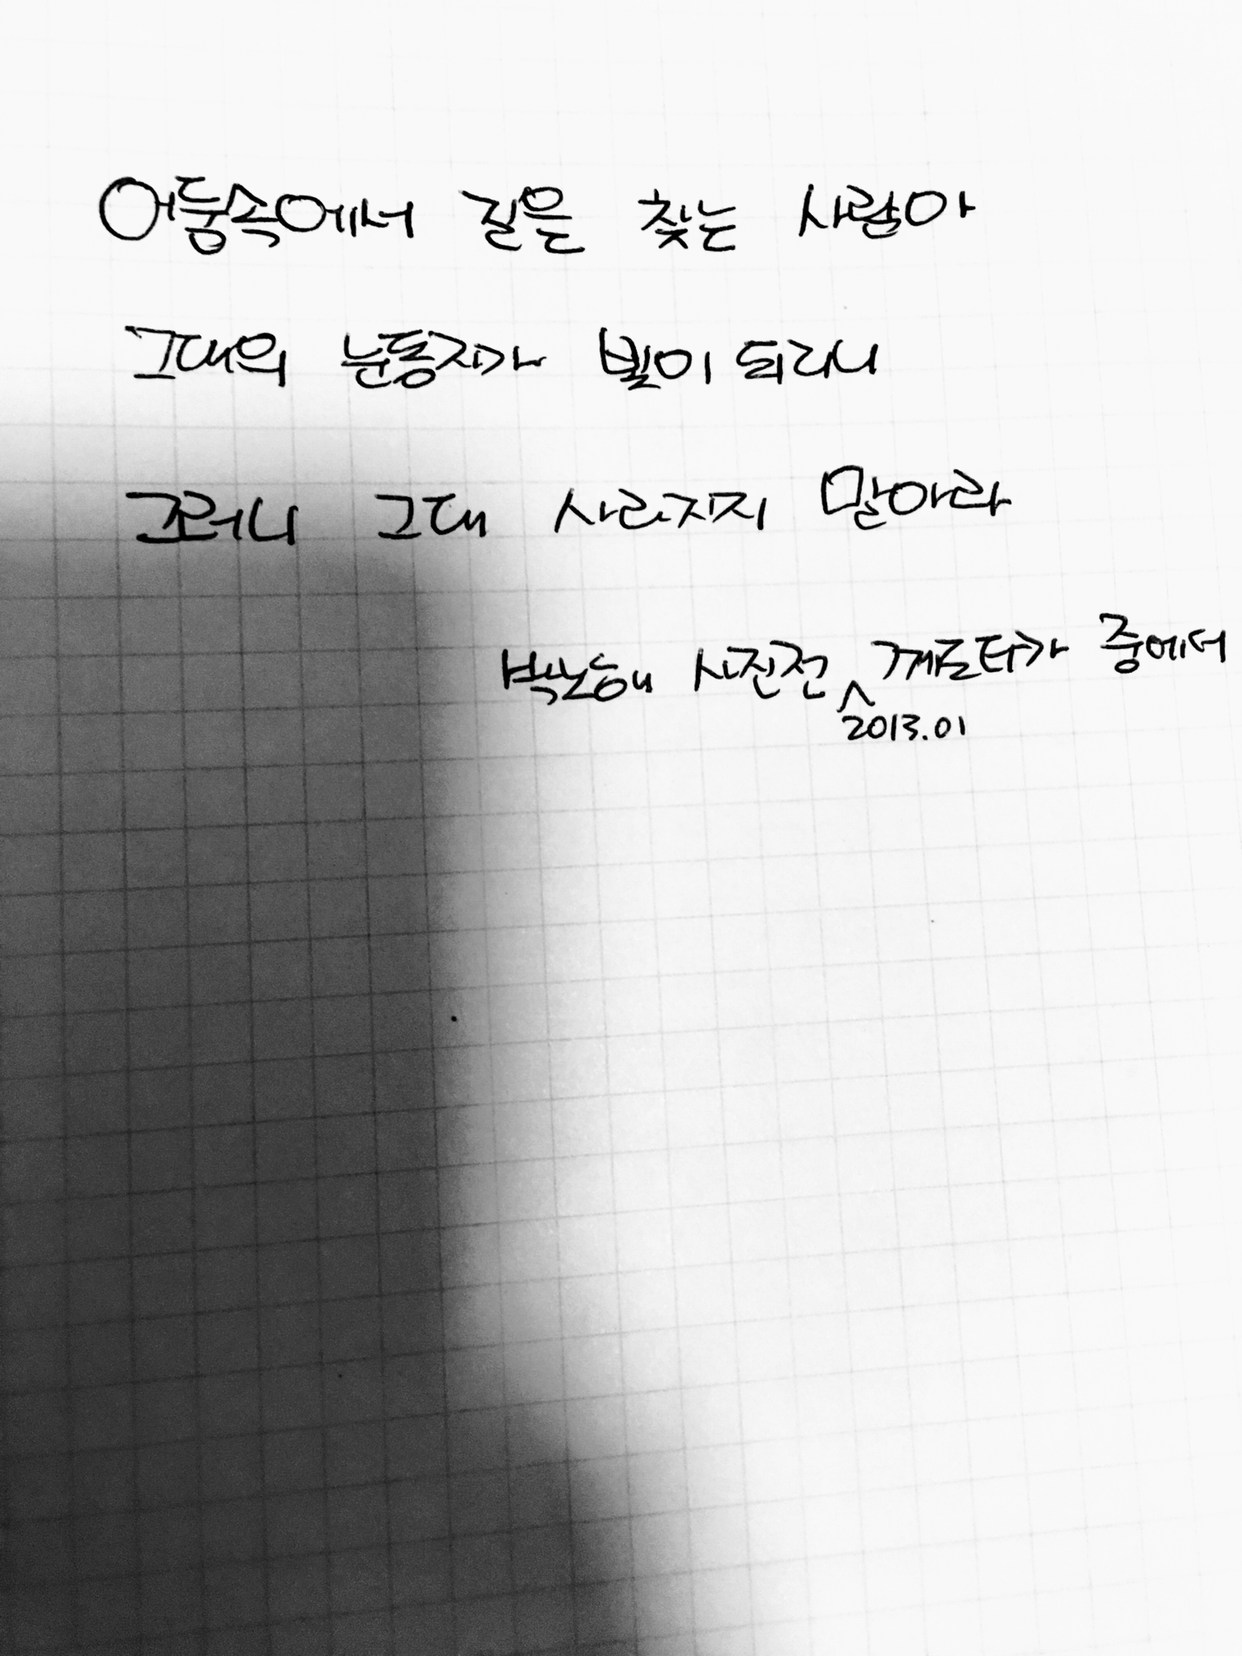 어둠속에서 길을 찾는 사람아
그대의 눈동자가 빛이 되리니
그러니 그대 사라지지 말아라
박노해 사진전 께로티카 중에서
2013.01